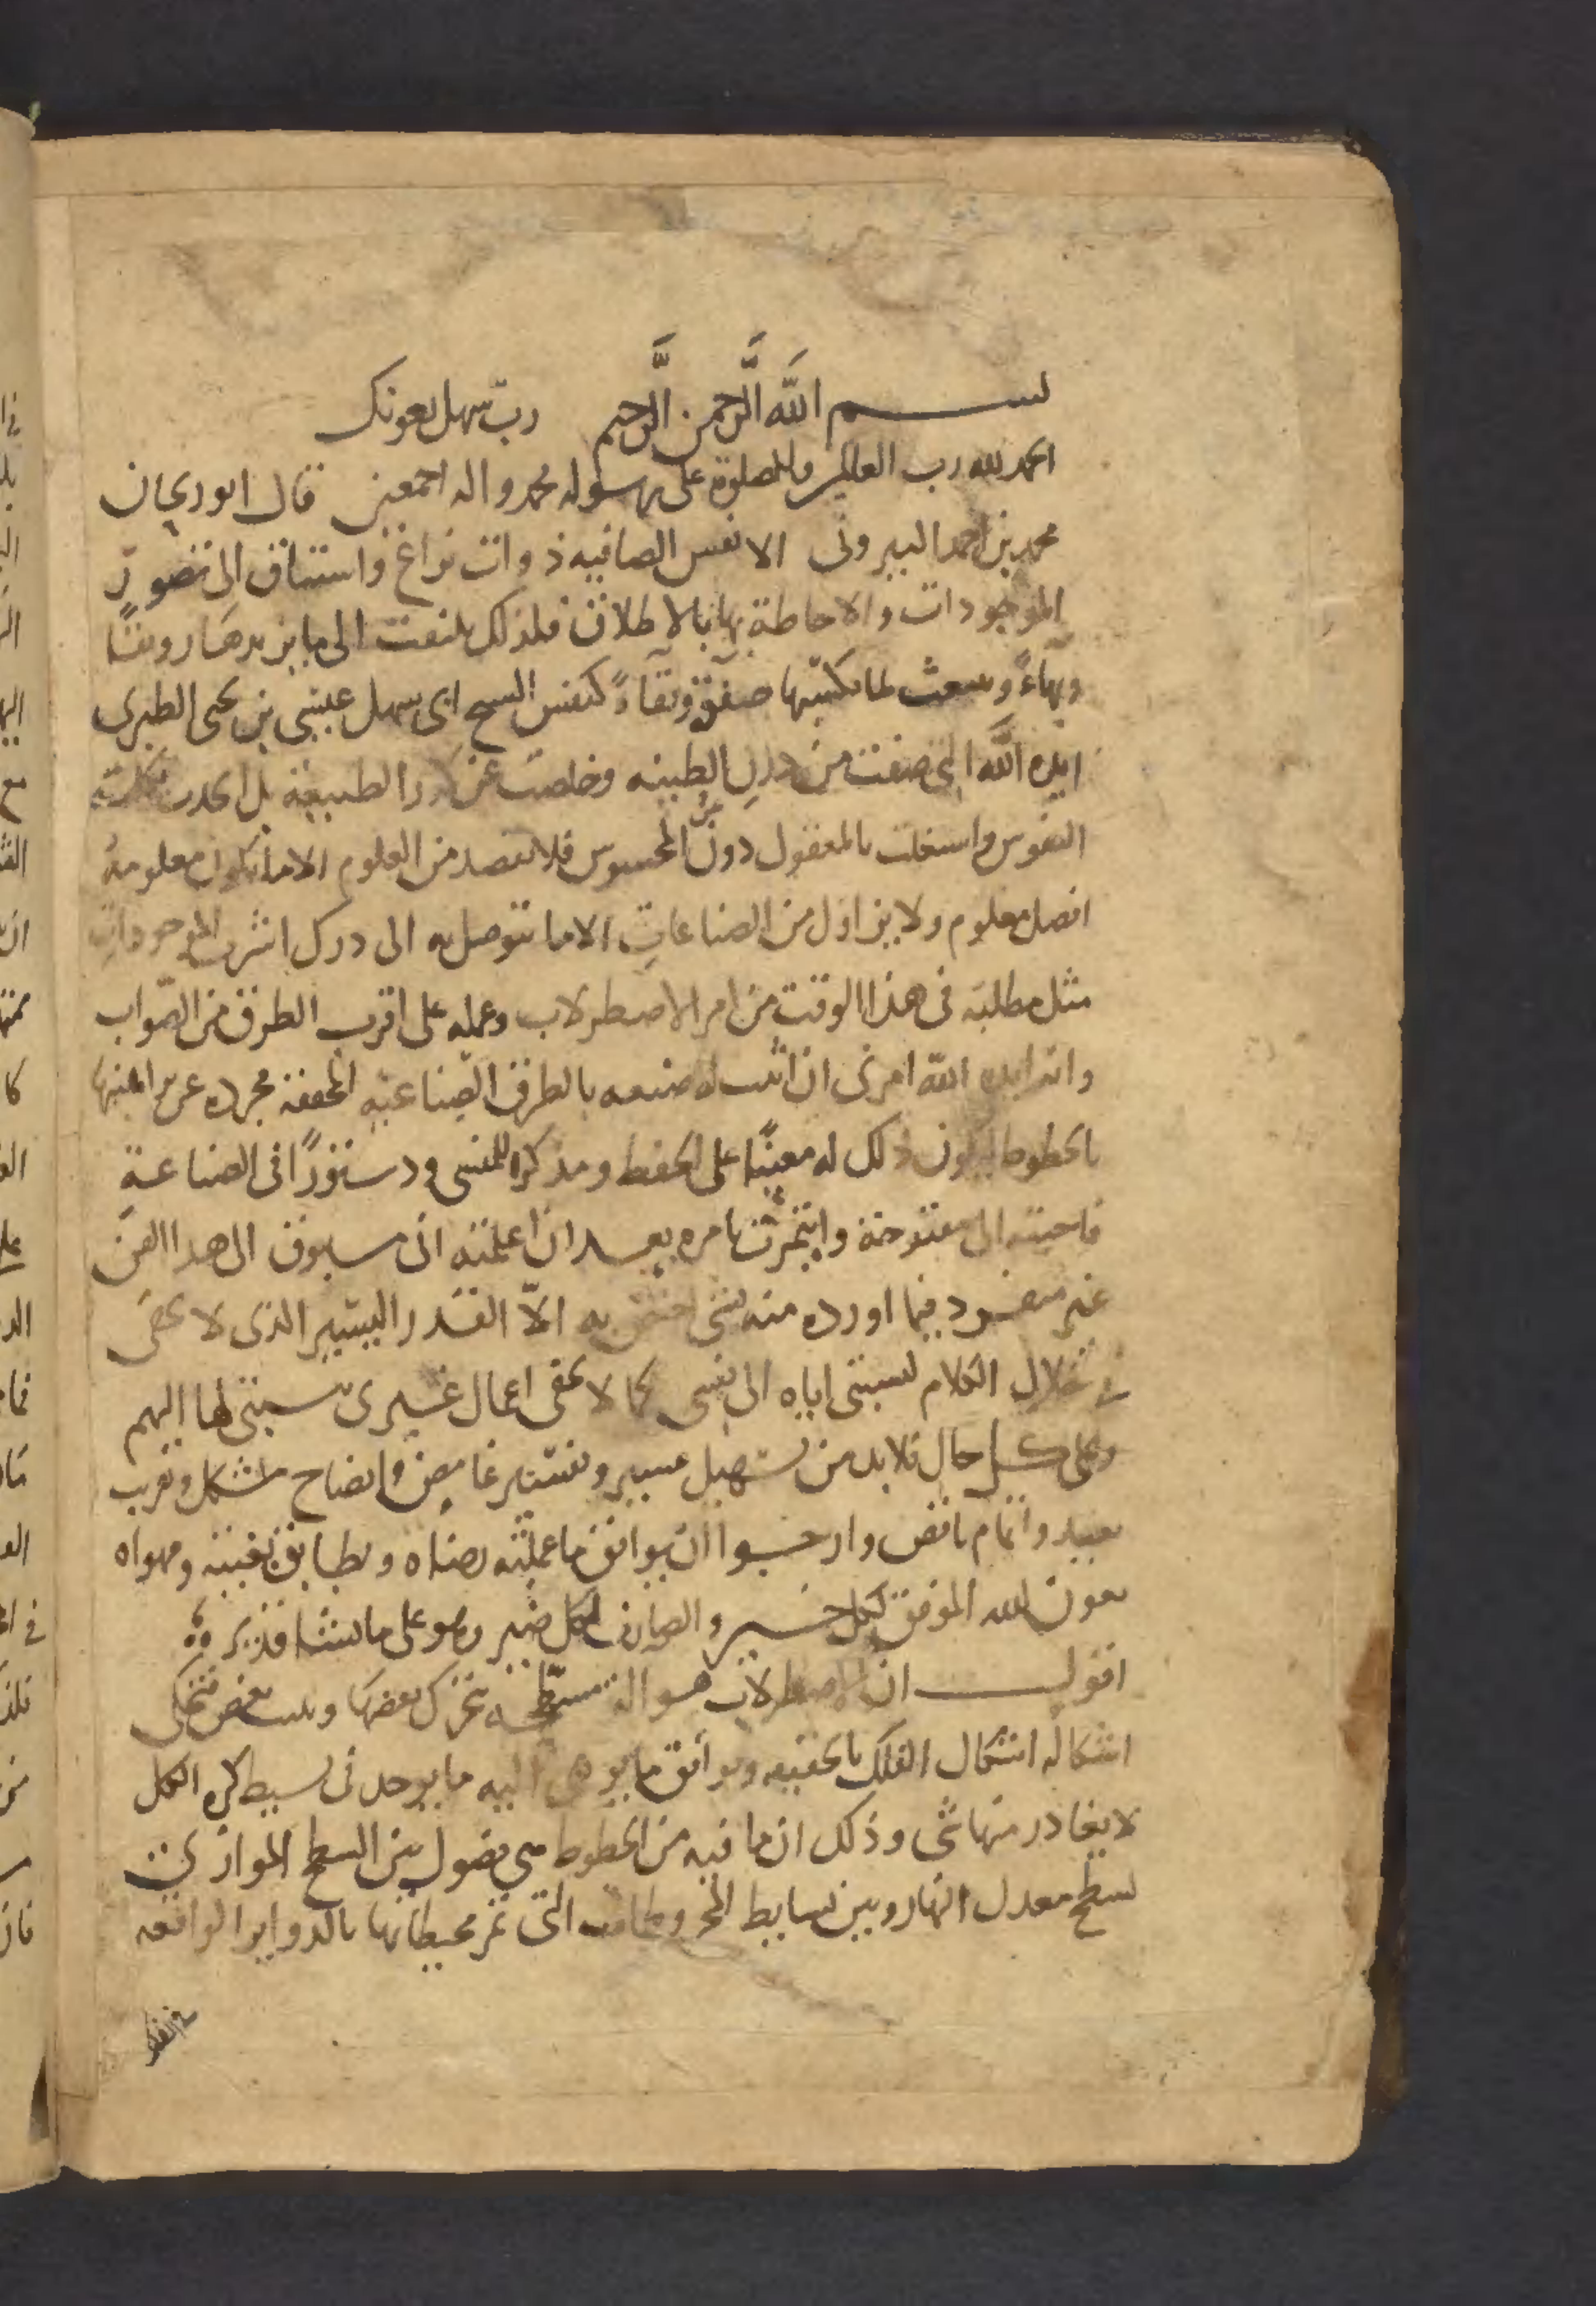 بسم الله الرحمن الرحيم رب سهل بعونك
الحمد لله رب العالمين والصلوة على رسوله محمد واله اجمعين قال ابو ريحان
محمد بن احمد البيرونى الانفس الصافيه ذوات نزاع واشتياق الى تصور
الموجودات والاحاطة بها بالاطلاق فلذلك يلتفت الى ما يزيدها رونقا
وبهاءً لما يكسبها ونقاءً كنفس الشيخ ابى سهل عيسى بن يحيى الطبرى
ايده الله التى صفت من الطينه وخلصت عن كدر الطبيعة بل
النفوس واشتغلت بالمعقول دون المحسوس فلا تقصد من العلوم الا ما يكون معلومه
افضل معلوم ولا يزاول من الصناعات الا ما يتوصل به الى درك اشرف الموجودات
مثل مطلبه فى هذا الوقت من امر الاصطرلاب وعمله على اقرب الطرق من الصواب
وانه ايده الله امرنى ان اثبت له صنعه بالطرق الصناعيه المحققه مجرده عن براهينها
بالخطوط ليكون ذلك له معينًا على الحفظ ومذكرا للمنسى ودستورًا فى الصناعة
فاجبته الى مقترحه وايتمرت بامره بعد ان اعلمته انى مسبوق الى هذا الفن
غير منفرد فيما اورده منه بشى اختص به الا القدر اليسير الذى لا يخفى
فى خلال الكلام لنسبتى اياه الى نفسى كما لا يخفى اعمال غيرى بنسبتى لها اليهم
وعلى كل حال فلا بد من تسهيل عسير وتفسير غامض وايضاح مشكل وتقريب
بعيد واتمام ناقص وارجوا ان يوافق ما عملته رضاه ويطابق بغيته ومهواه
بعون الله الموفق لكل خير والصارف لكل ضير وهو على ما يشا قدير
اقول ان الاصطرلاب هو اله مسطحه يتحرك بعضها ويثبت بعض فتحكى
اشكاله اشكال الفلك بالحقيقه ويوافق ما اليه ما يوجد فى بسيط كره الكل
لا يغادر منها شى وذلك ان ما فيه من الخطوط هى فصول بين السطح الموازى
لسطح معدل النهار وبين بسايط المخروطات التى تمر محيطاتها بالدواير الواقعه